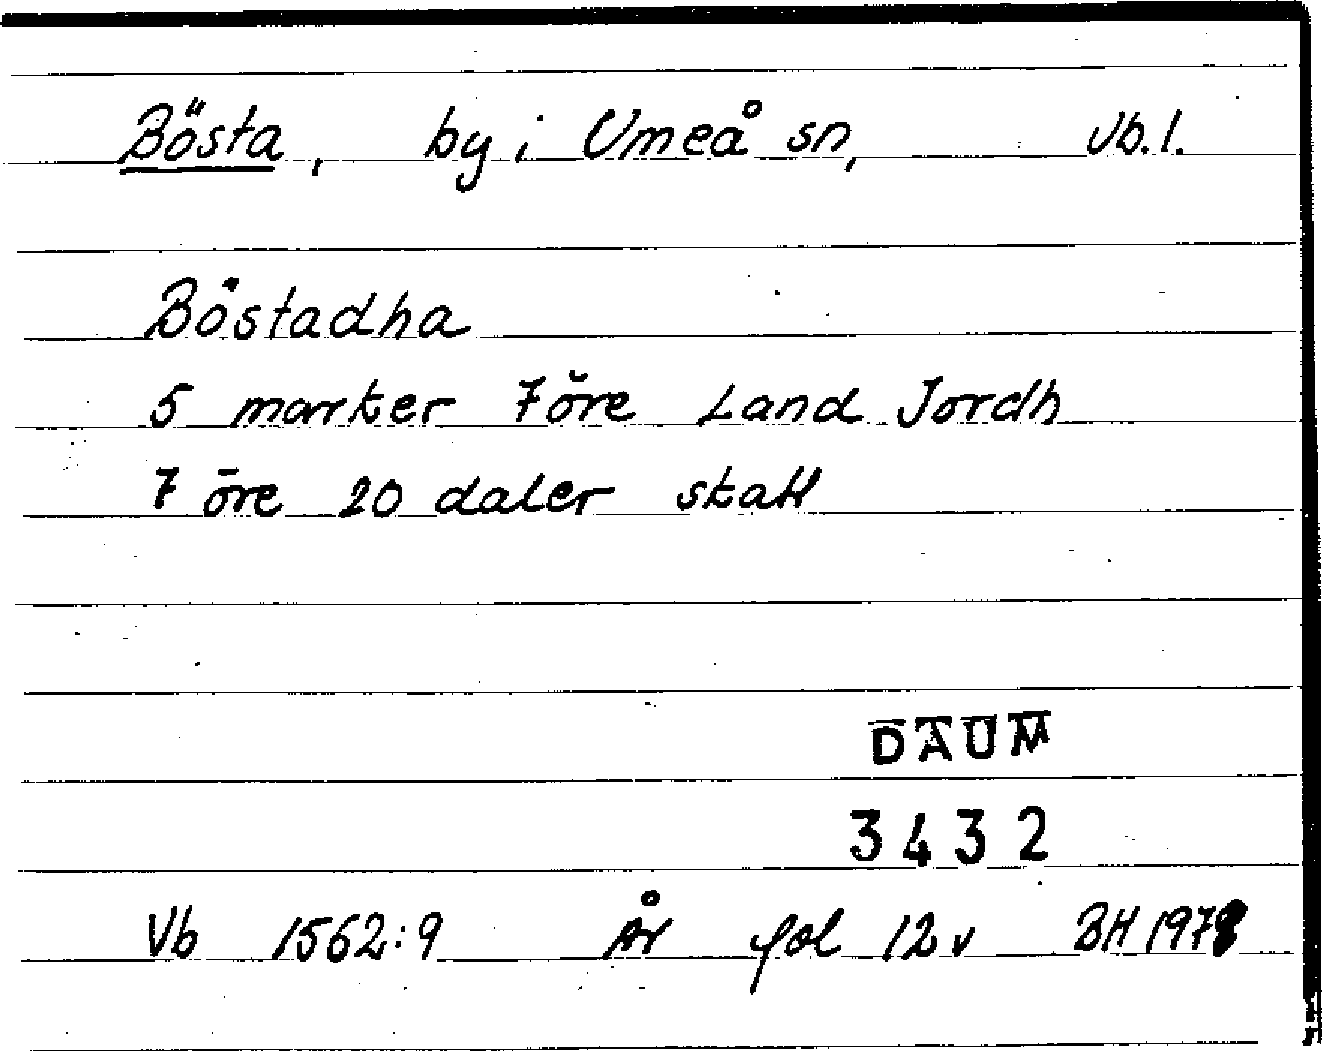 Bösta, by i Umeå sn, Vb. l.
Böstadha
5 marker 7 öre Land Jordh
7 öre 20 daler skatt
DAUM
3432
Vb 1562:9 År fol 12 v BH 1978